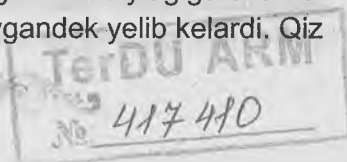 ygandek yelib kelardi. Qiz
TerDU ARM
№ 417410